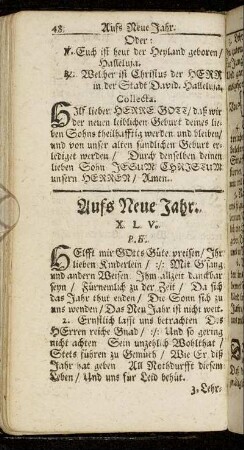 48. Auffs Neue Jahr.
Oder:
℣. Euch ist heut der Heyland geboren/
Halleluja.
℟. Welcher ist Christus der HERR
in der Stadt David. Halleluja.
Collecta.
HIlf lieber HERRE GOTT/ daß wir
der neuen leiblichen Geburt deines lie-
ben Sohns theilhafftig werden und bleiben/
und von unser alten sündlichen Geburt er-
lediget werden/ Durch denselben deinen
lieben Sohn JESUM CHRISTUM
unsern HERREN/ Amen.
Auffs Neue Jahr.
X. L. V.
P. E.
HElfft mir GOtts Güte preisen/ Jhr
lieben Kinderlein/ :/: Mit Gsang
und andern Weisen Jhm allzeit danckbar
seyn/ Fürnemlich zu der Zeit/ Da sich
das Jahr thut enden/ Die Sonn sich zu
uns wenden/ Das Neu Jahr ist nicht weit.
2. Ernstlich lasst uns betrachten Des
HErren reiche Gnad/ :/: Und so gering
nicht achten Sein unzehlich Wohlthat/
Stets führen zu Gemüth/ Wie Er diß
Jahr hat geben All Nothdurfft diesem
Leben/ Und uns für Leid behüt.
3. Lehr-